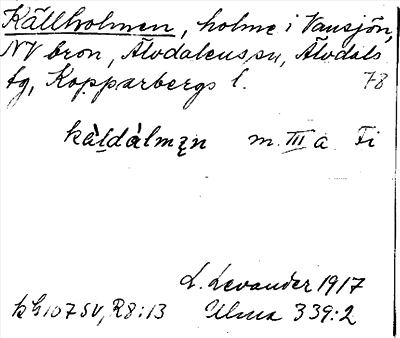 Källholmen, holme i Vansjön,
NV bron, Älvdalens sn, Älvdals
tg, Kopparbergs l. 78
kàldàlmn m. III a Fi
L. Levander 1917
k G 107 SV, R8:13 Ulma 339:2